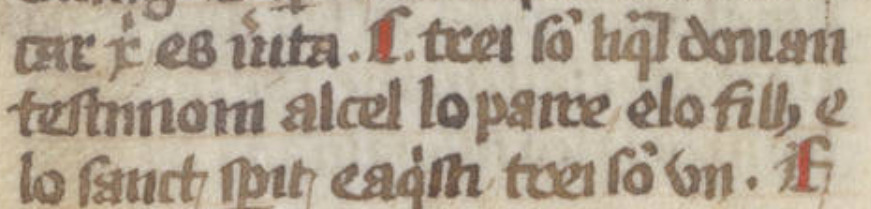 car xp̄s es ueritat. E. trei sō liq̄l donan
testimoni al cel lo paire e lo filh e
lo sanct sp̄it e aq̄sti trei sō vn. E